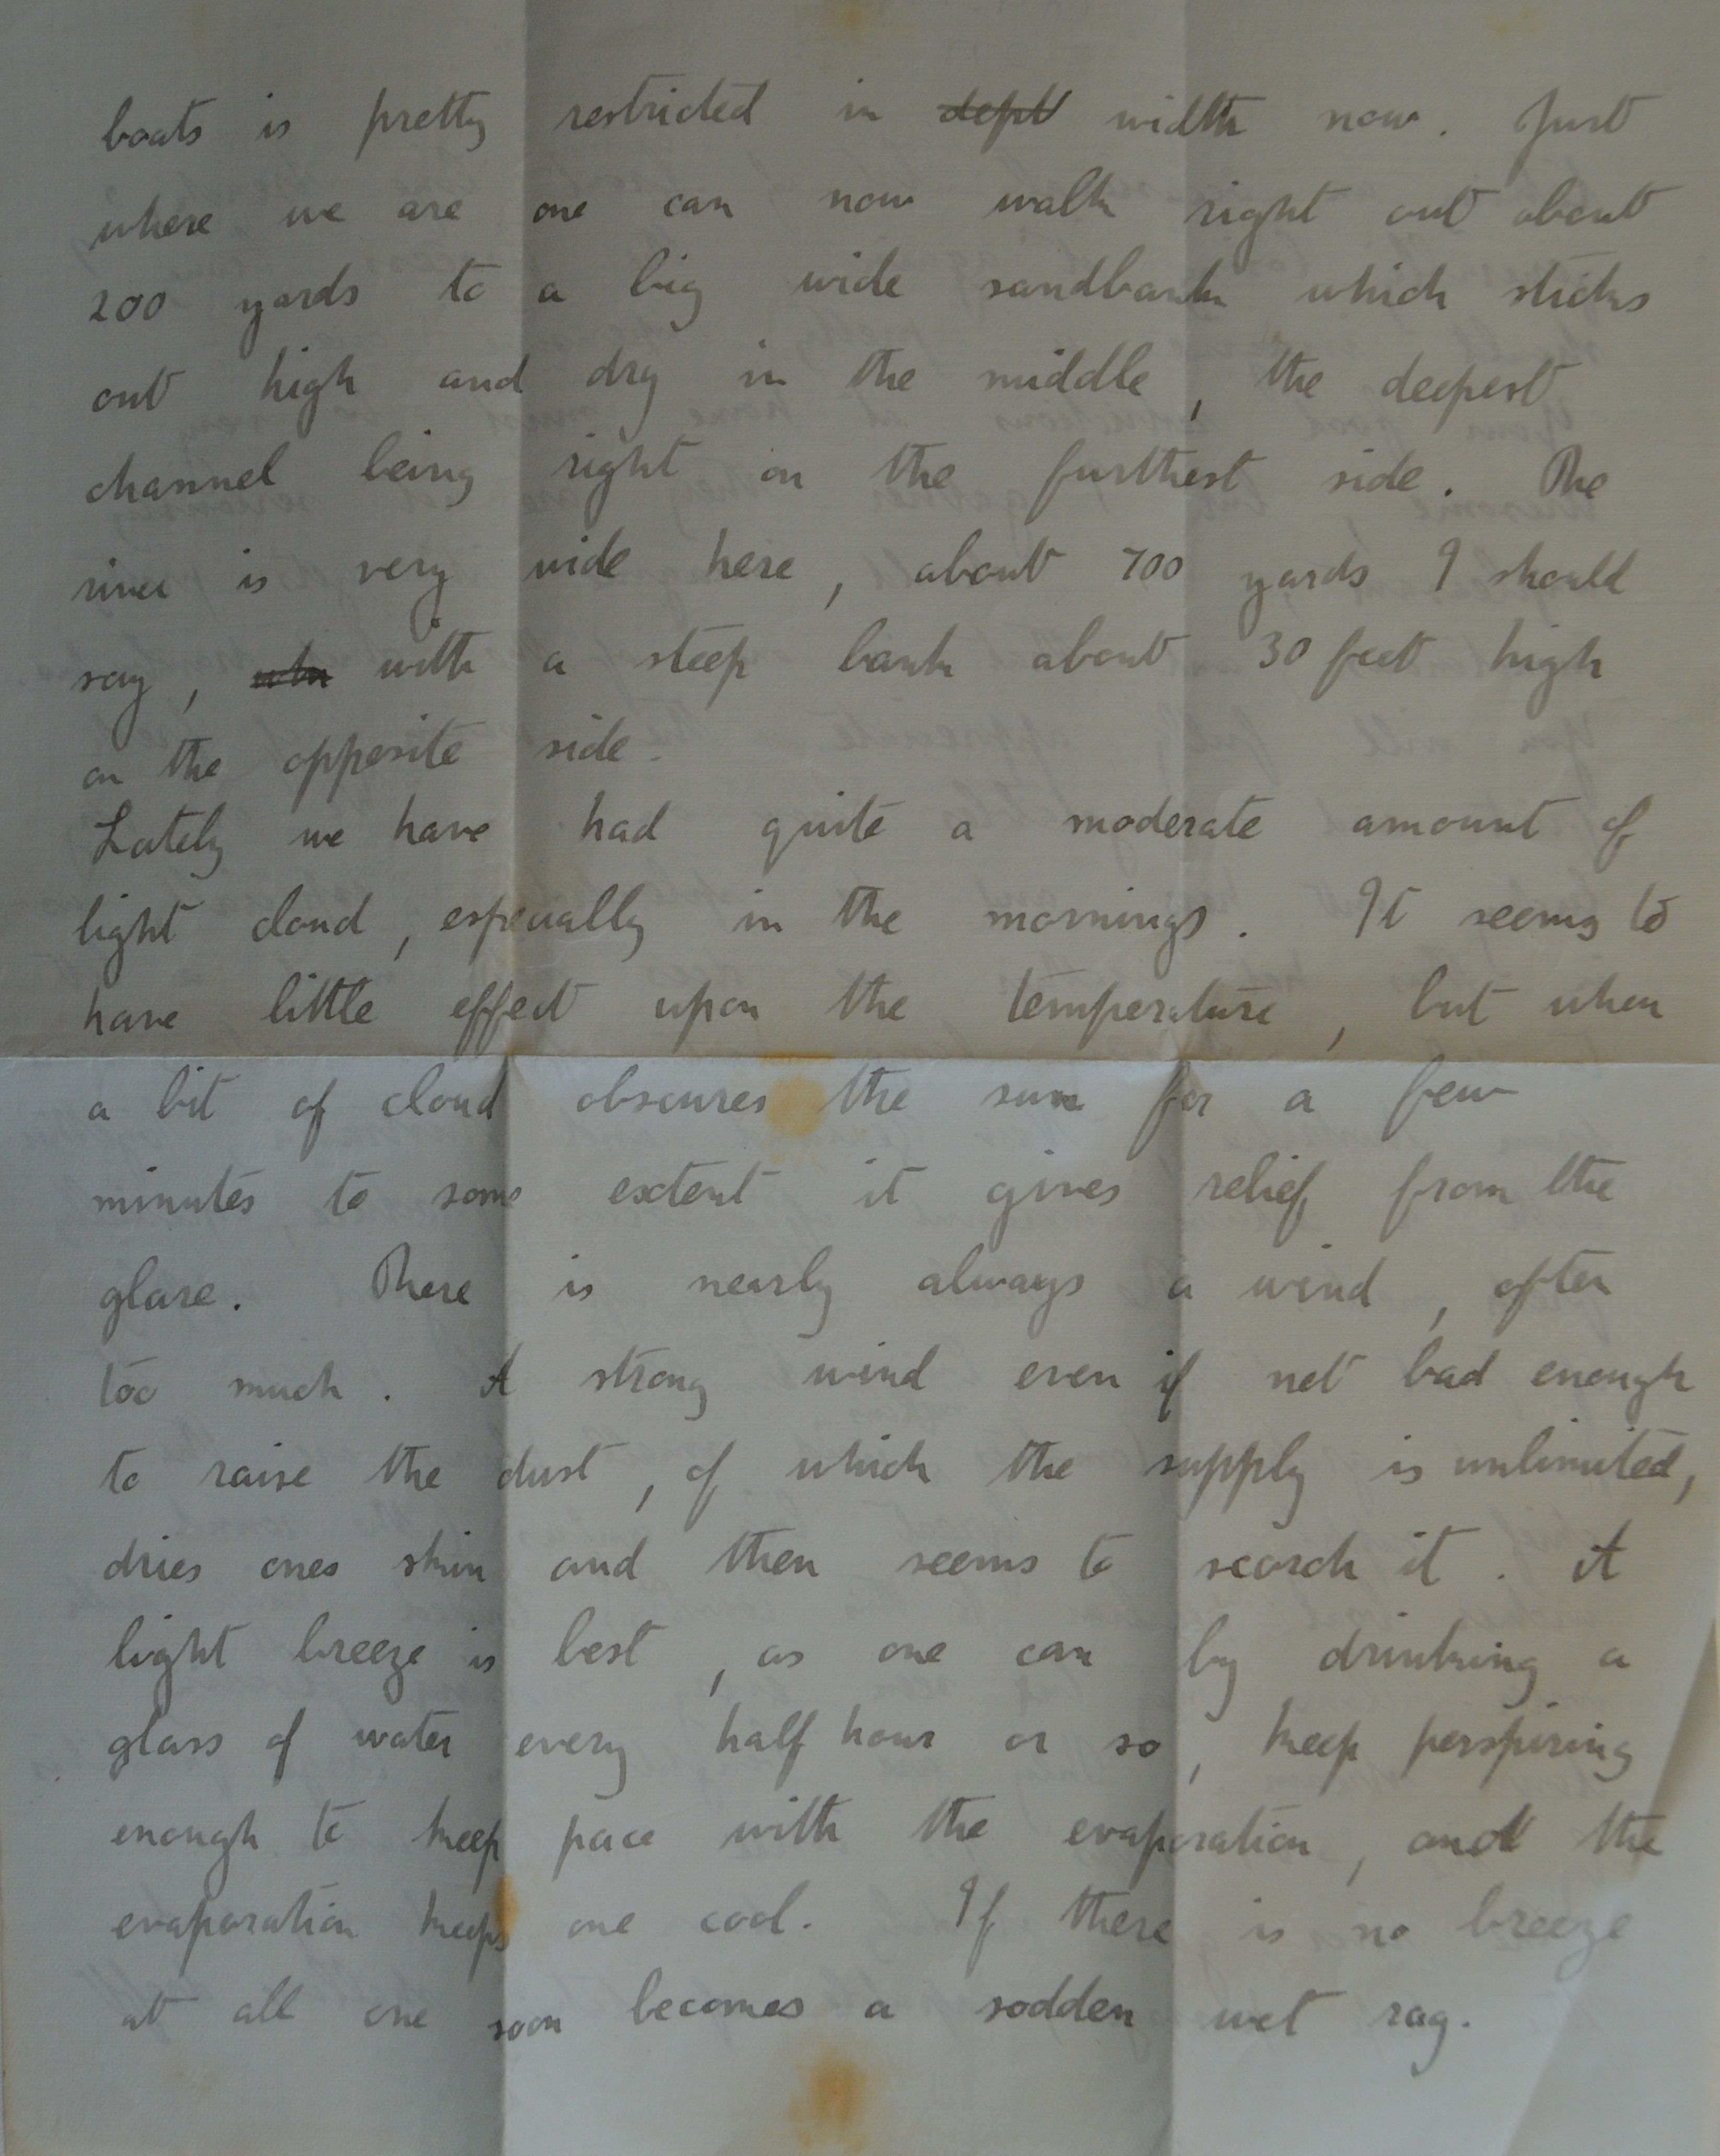 boats is pretty restricted in dept width now. Just
where we are one can now walk right out about
200 yards to a big wide sandbank which sticks
out high and dry in the middle, the deepest
channel being right on the furthest side. The
river is very wide here, about 700 yards I should
say, with a steep bank about 30 feet high
on the opposite side.
Lately we have had quite a moderate amount of
light cloud, especially in the mornings. It seems to
have little effect upon the temperature, but when
a bit of cloud obscures the sun for a few
minutes to some extent it gives relief from the
glare. There is nearly always a wind, often
too much. A strong wind even if not bad enough
to raise the dust, of which the supply is unlimited,
dries ones skin and then seems to scorch it. A
light breeze is best, as one can by drinking a
glass of water every half hour or so, keep perspiring
enough to keep pace with the evaporation, and the
evaporation keeps one cool. If there is no breeze
at all one soon becomes a sodden wet rag.